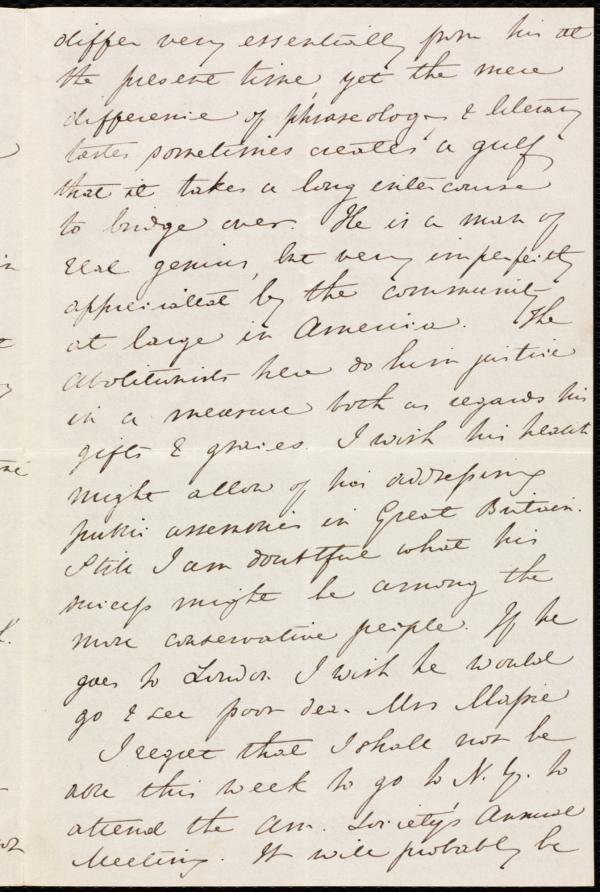 differ very essentially from his at
the present time, yet the mere
difference of phraseology & literary
tastes sometimes creates a gulf
that it takes a long intercourse
to bridge over. He is a man of
real genius, but very imperfectly
appreciated by the community
at large in America. The
Abolitionists here do him justice
in a measure both as regards his
gifts & graces. I wish his health
might allow of his addressing
public assemblies in Great Britain.
Still I am doubtful what his
success might be among the
more conservative people. If he
goes to London I wish he would
go & see poor dear Mrs Massie
I regret that I shall not be
able this week to go to N. Y. to
attend the Am. Society's Annual
Meeting. It will probably be